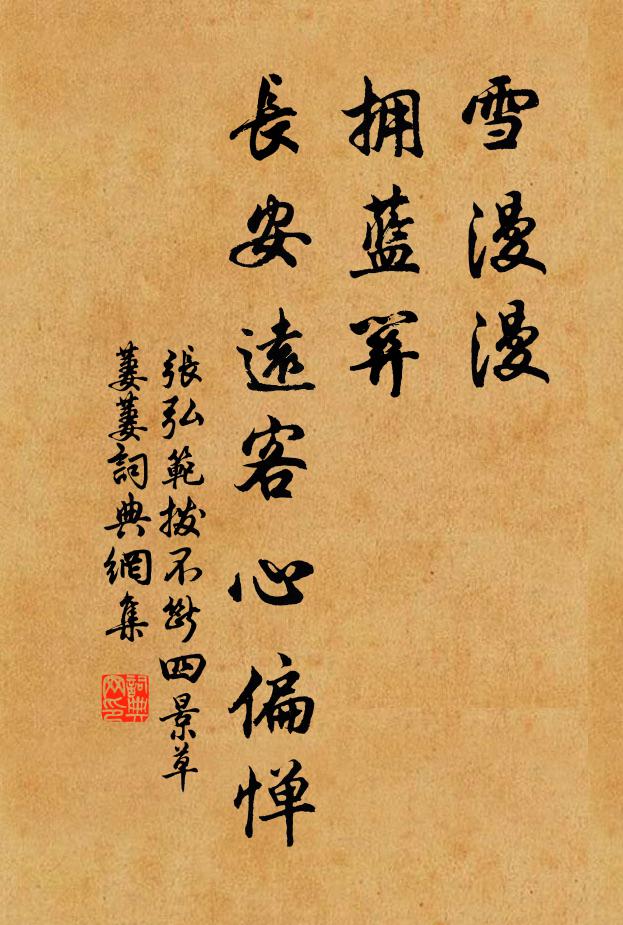 雪漫漫
拥藍关
長安遠客心偏惮
張弘範撥不斷四景草
萋萋詞典網集
詞典
网印